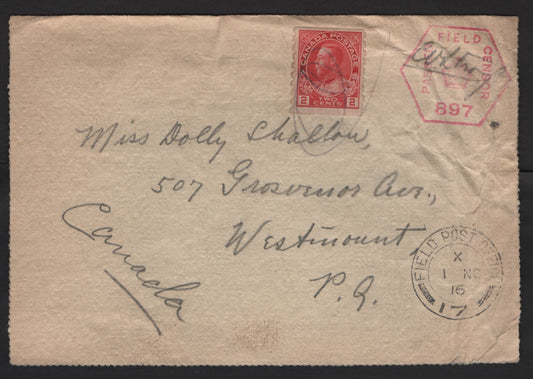 CANADA POSTAGE
2 TWO CENTS 2
FIELD CENSOR
897
Miss Dolly Shallow,
507 Grosvenor Ave.,
Westmount
P.Q.
Canada
FIELD POST OFFICE
X
1 NO
16
17